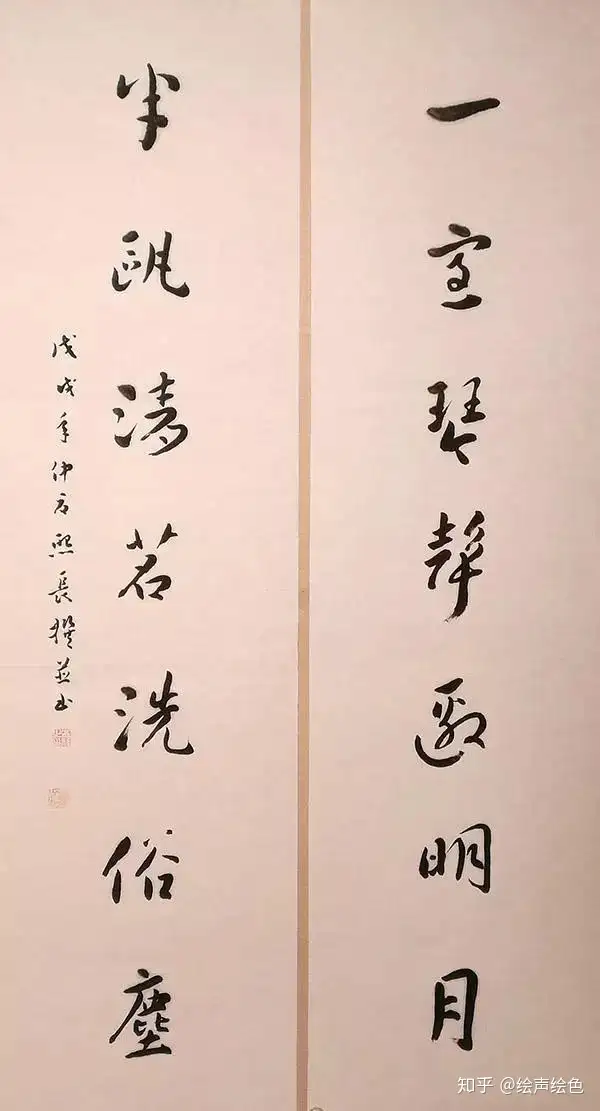 一室琴聲邀明月
半甌清茗洗俗塵
戊戌年仲京熙長撰並書
知乎 @绘声绘色